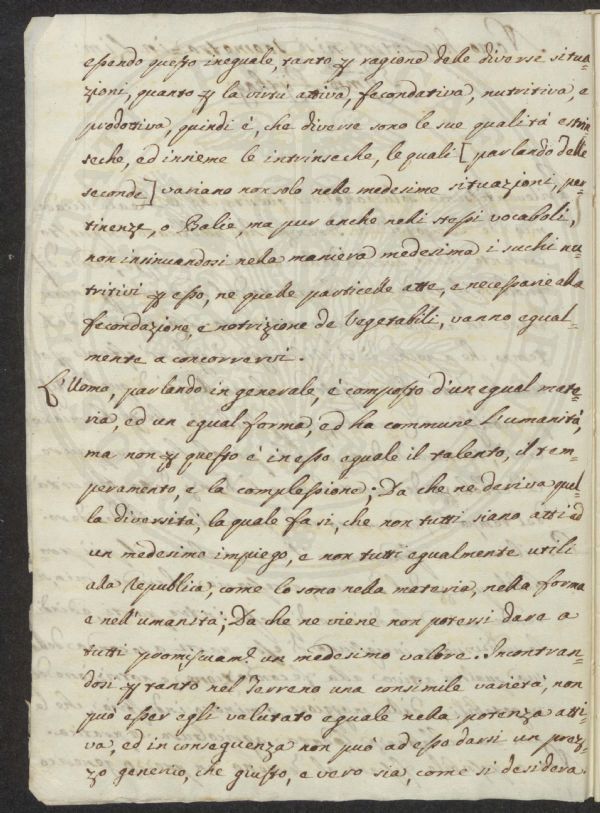 essendo questo ineguale, tanto p ragione delle diverse situa=
zioni, quanto p la virtù attiva, fecondativa, nutritiva, e
produttiva, quindi è, che diverse sono le sue qualità estrin
seche, ed insieme le intrinseche, le quali [parlando delle
seconde] variano non solo nelle medesime situazioni, per=
tinenze, o Balìe, ma pur anche nelli stessi vocaboli,
non insinuandosi nella maniera medesima i suchi nu=
tritivi p esso, ne quelle particelle atte, e necessarie alla
fecondazione, e notrizione de Vegetabili, vanno egual=
mente a concorrervi.
L'Uomo, parlando in generale, è composto d'un egual mate=
ria, ed un egual forma, ed ha commune L'umanità,
ma non p questo è in esso eguale il talento, il tem=
peramento, e la complessione; Da che ne deriva quel=
la diversità, la quale fa sì, che non tutti siano atti ad
un medesimo impiego, e non tutti egualmente utili
alla Republica, come lo sono nella materia, nella forma
e nell'umanità; Da che ne viene non potersi dare a
tutti promiscuam.e un medesimo valore. Incontran=
dosi p tanto nel Terreno una consimile varietà, non
può esser egli valutato eguale nella potenza atti=
va, ed in conseguenza non può ad esso darsi un prez=
zo generico, che giusto, e vero sia, come si desidera.